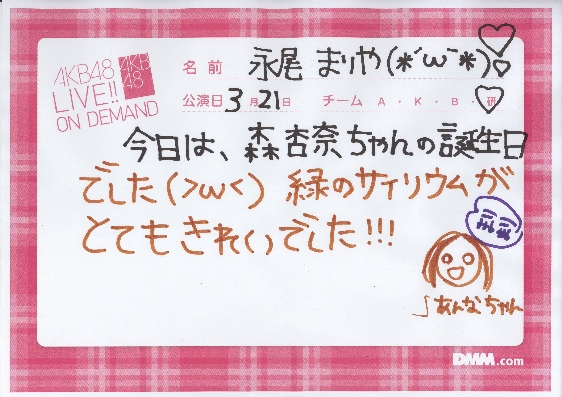 AKB48
LIVE!!
ON DEMAND
AKB
48
名前 永尾 まりや(*´ω`*)♡♡
公演日 3月21日 チーム A・K・B・研♡
今日は、森杏奈ちゃんの誕生日
でした(>ω<) 緑のサイリウムが
とてもきれいでした!!!
あんなちゃん
DMM.com